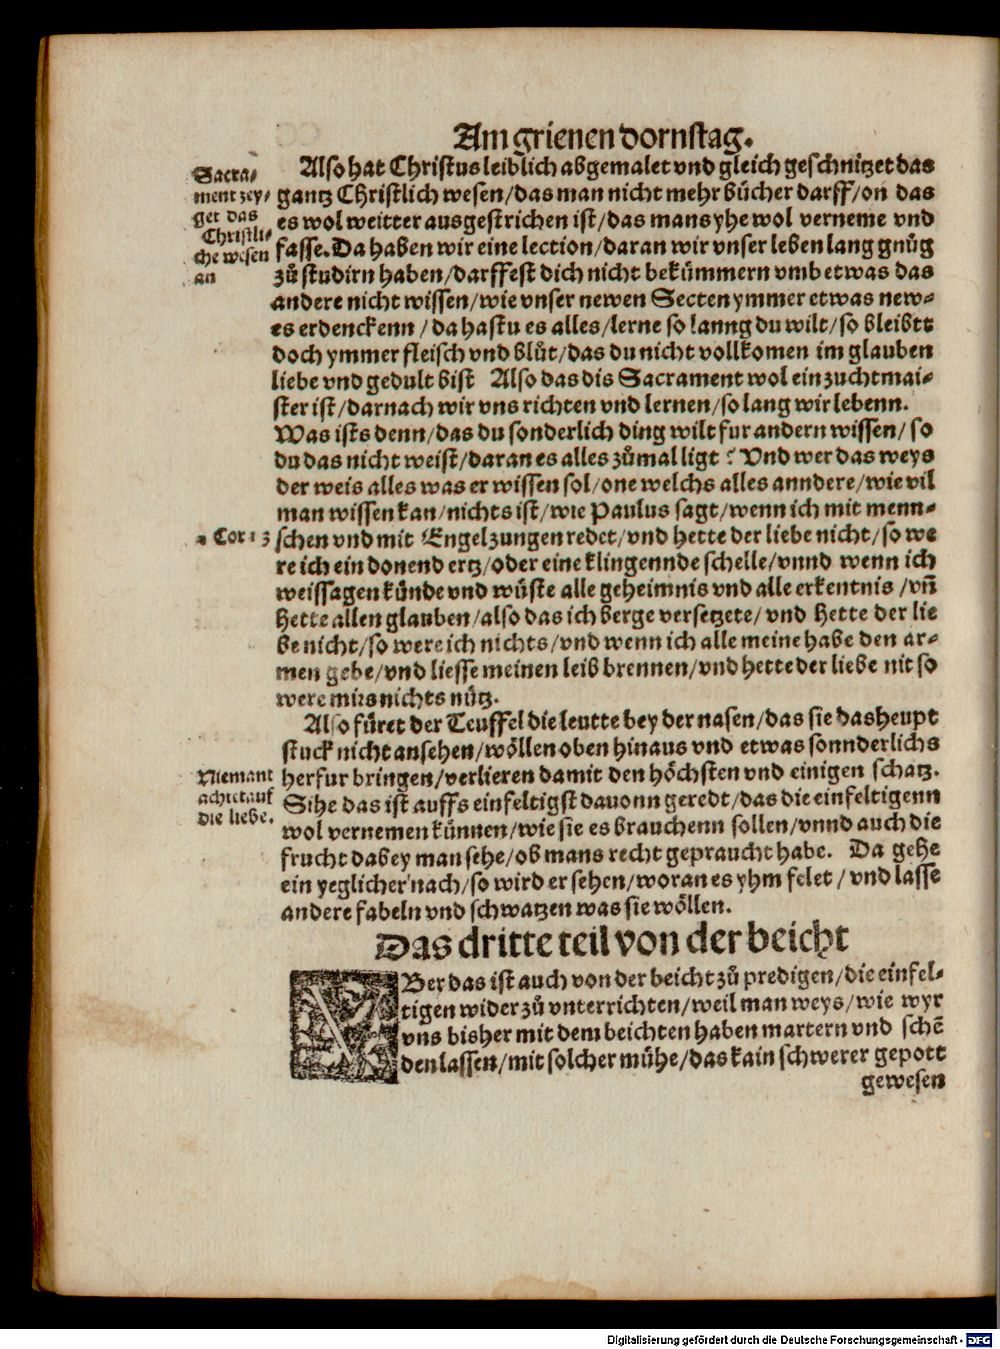 Am grienen dornstag.
Sacra-
ment zey-
get das
Christli-
che wesen
an
Also hat Christus leiblich abgemalet vnd gleich geschnitzet das
gantz Christlich wesen/das man nicht mehr bücher darff/on das
es wol weitter ausgestrichen ist/das mans yhe wol verneme vnd
fasse. Da haben wir eine lection/daran wir vnser leben lang gnůg
zů studirn haben/darffest dich nicht bekümmern vmb etwas das
andere nicht wissen/wie vnser newen Secten ymmer etwas new-
es erdenckenn/da hastu es alles/lerne so lanng du wilt/so bleibtt
doch ymmer fleisch vnd blůt/das du nicht vollkomen im glauben
liebe vnd gedult bist Also das dis Sacrament wol ein zuchtmai-
ster ist/darnach wir vns richten vnd lernen/so lang wir lebenn.
Was ists denn/das du sonderlich ding wilt fur andern wissen/so
du das nicht weist/daran es alles zůmal ligt? Vnd wer das weys
der weis alles was er wissen sol/one welchs alles anndere/wie vil
man wissen kan/nichts ist/wie Paulus sagt/wenn ich mit menn-
1 Cor 13
schen vnd mit Engelzungen redet/vnd hette der liebe nicht/so we
re ich ein donend ertz/oder eine klingennde schelle/vnnd wenn ich
weissagen künde vnd wüste alle geheimnis vnd alle erkentnis/vñ
hette allen glauben/also das ich berge versetzete/vnd hette der lie
be nicht/so were ich nichts/vnd wenn ich alle meine habe den ar-
men gebe/vnd liesse meinen leib brennen/vnd hette der liebe nit so
were mirs nichts nütz.
Also füret der Teuffel die leutte bey der nasen/das sie das heupt
stuck nicht ansehen/wöllen oben hinaus vnd etwas sonnderlichs
Niemant
achtet auf
die liebe.
herfur bringen/verlieren damit den höchsten vnd einigen schatz.
Sihe das ist auffs einfeltigst dauonn geredt/das die einfeltigenn
wol vernemen künnen/wie sie es brauchenn sollen/vnnd auch die
frucht dabey man sehe/ob mans recht gepraucht habe. Da gehe
ein yeglicher nach/so wird er sehen/woran es yhm felet/vnd lasse
andere fabeln vnd schwatzen was sie wöllen.
Das dritte teil von der beicht
ABer das ist auch von der beicht zů predigen/die einfel-
tigen wider zů vnterrichten/weil man weys/wie wyr
vns bisher mit dem beichten haben martern vnd schẽ
den lassen/mit solcher mühe/das kain schwerer gepott
gewesen
Digitalisierung gefördert durch die Deutsche Forschungsgemeinschaft - DFG